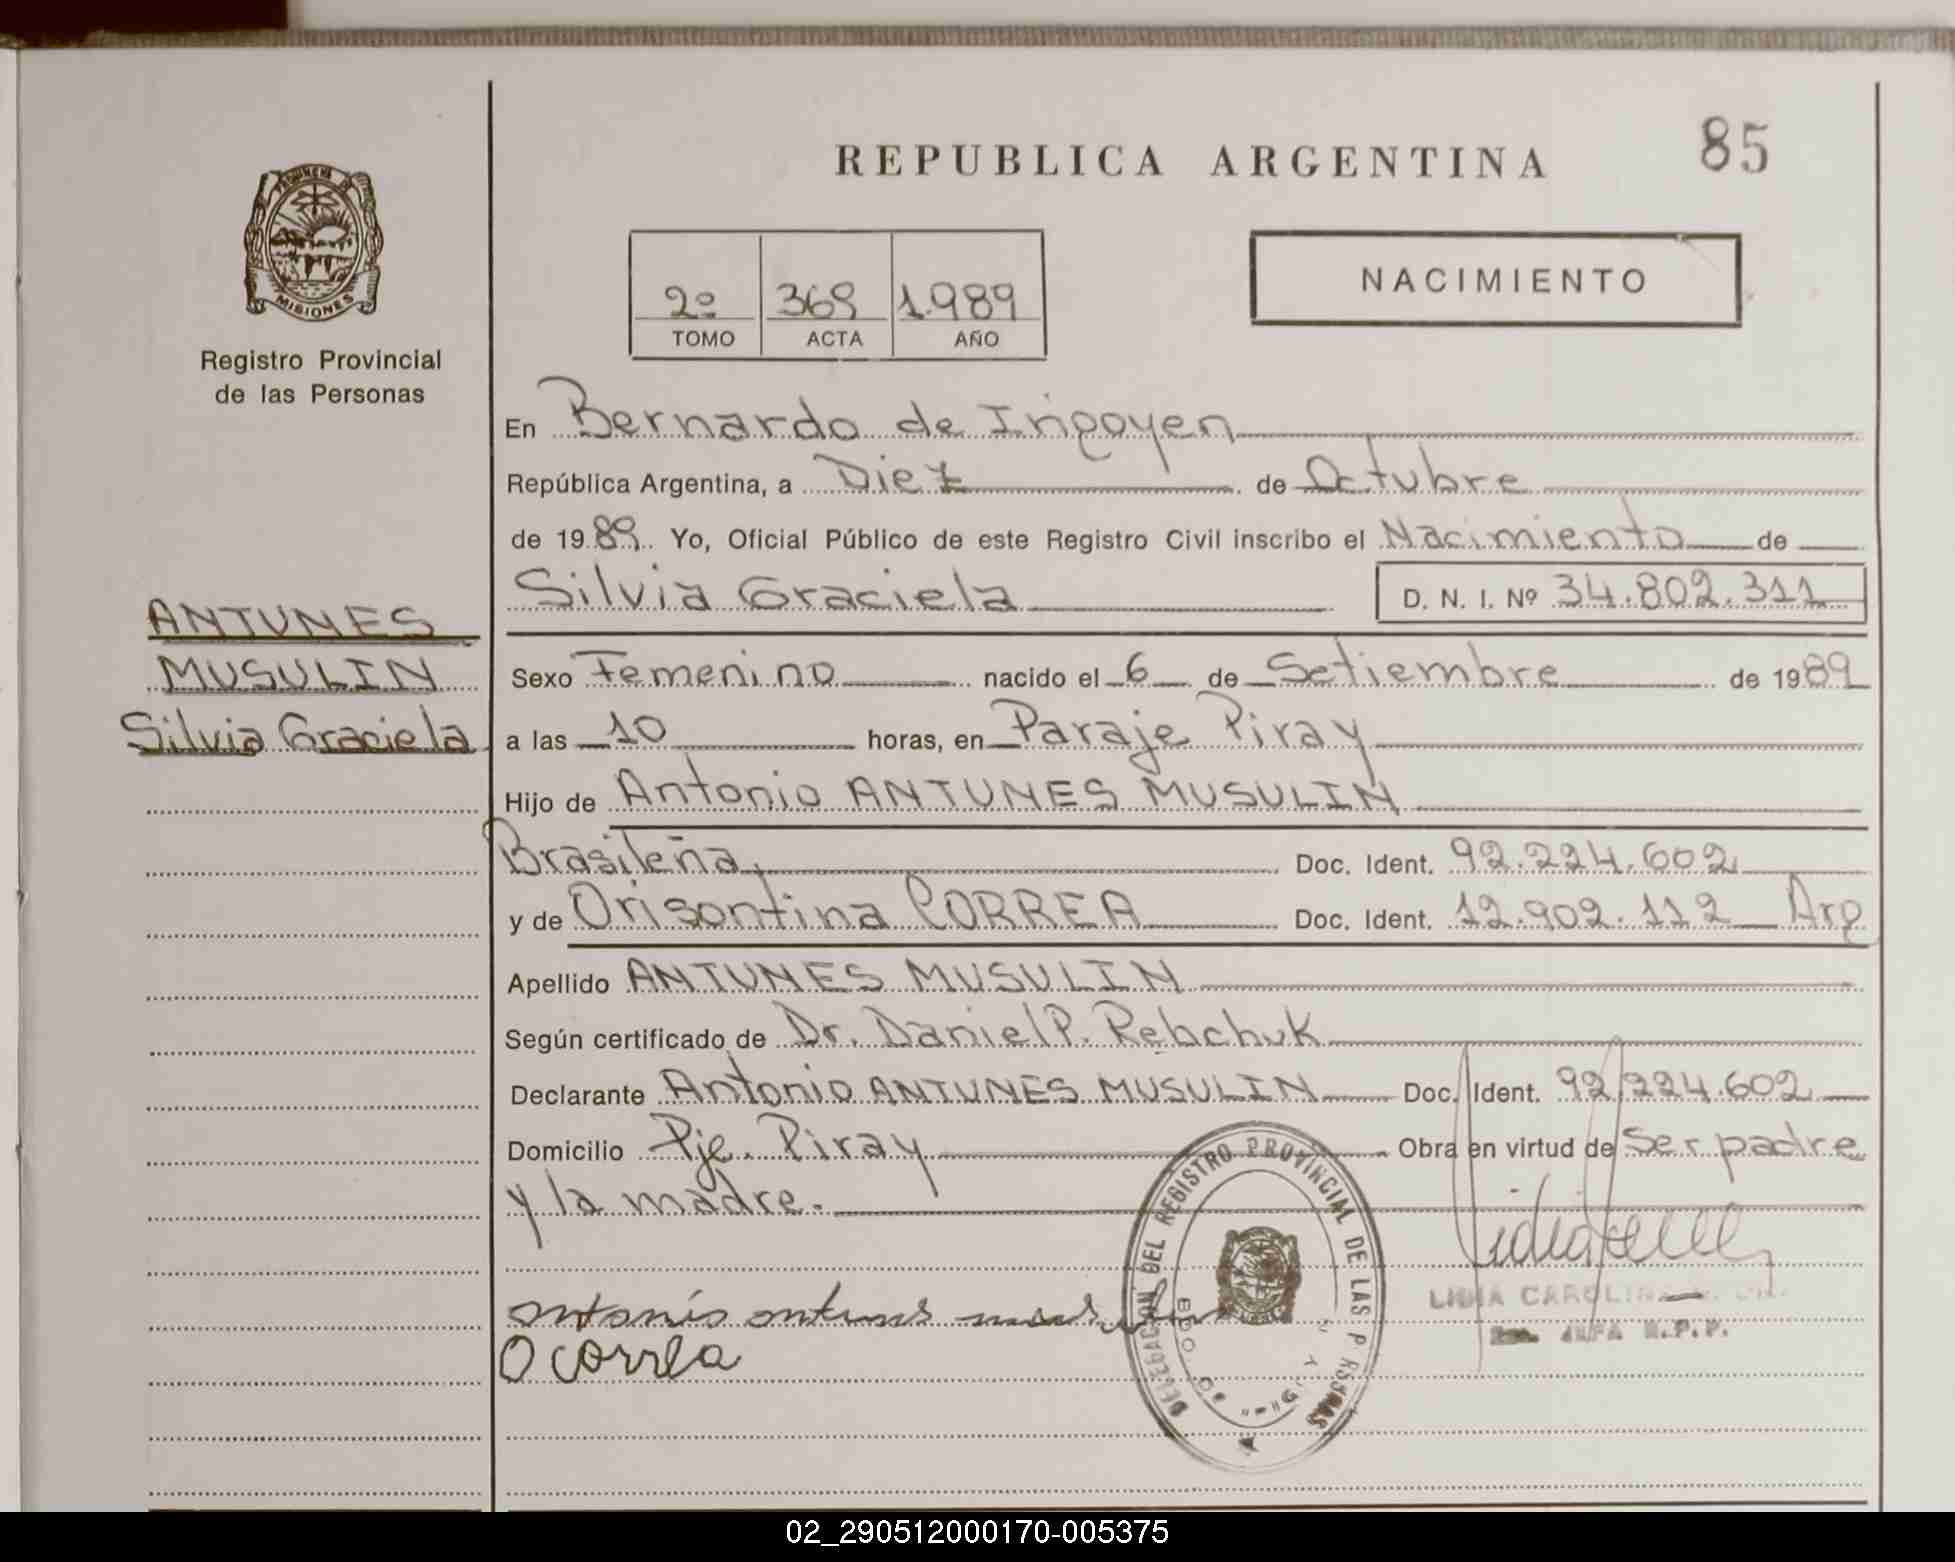 REPUBLICA ARGENTINA
85
PROVINCIA DE
MISIONES
Registro Provincial
de las Personas
2º 369 1.989
TOMO ACTA AÑO
NACIMIENTO
En Bernardo de Irigoyen
República Argentina, a Diez de Octubre
de 1989. Yo, Oficial Público de este Registro Civil inscribo el Nacimiento de
Silvia Graciela D. N. I. Nº 34.802.311
ANTUNES
MUSULIN
Silvia Graciela
Sexo Femenino nacido el 6 de Setiembre de 1989
a las 10 horas, en Paraje Piray
Hijo de Antonio ANTUNES MUSULIN
Brasileña Doc. Ident. 92.224.602
y de Orisontina CORREA Doc. Ident. 12.902.112 Arg
Apellido ANTUNES MUSULIN
Según certificado de Dr. Daniel P. Rebchuk
Declarante Antonio ANTUNES MUSULIN Doc. Ident. 92.224.602
Domicilio Pje. Piray Obra en virtud de Ser padre
y la madre.
antonio antunes musulin
O correa
DELEGACION DEL REGISTRO PROVINCIAL DE LAS PERSONAS
BDO. DE
CAROLINA
JEFA R.P.P.
02_290512000170-005375